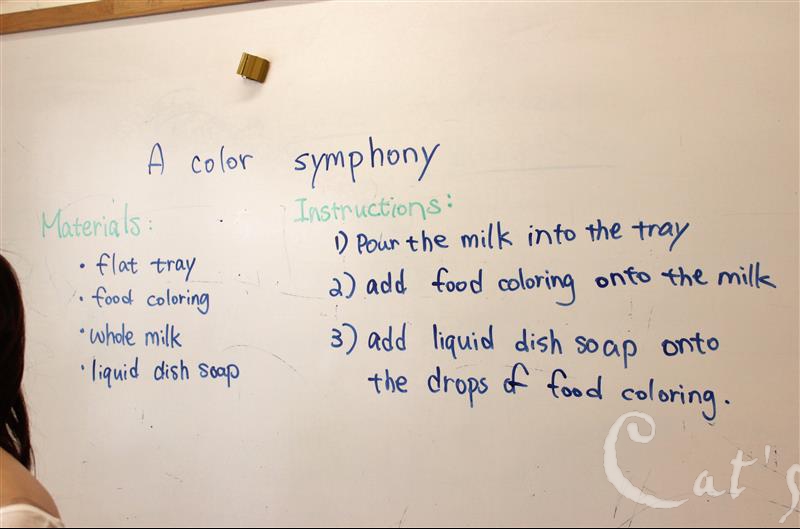 A color symphony
Materials:
• flat tray
• food coloring
• whole milk
• liquid dish soap
Instructions:
1) Pour the milk into the tray
2) add food coloring onto the milk
3) add liquid dish soap onto
the drops of food coloring.
Cat's